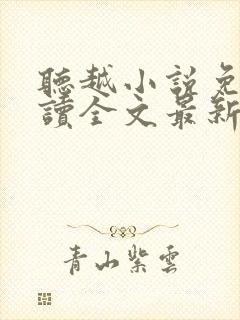 聽越小說免
讀全文最新
青山紫雲